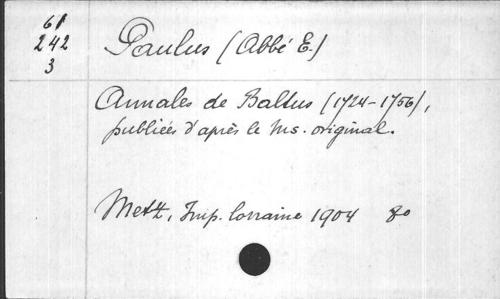 61
242
3
Paulus (Abbé E.)
Annales de Baltus (1724-1756),
publiées d'après le Ms. original.
Metz, Imp. lorraine 1904 8o